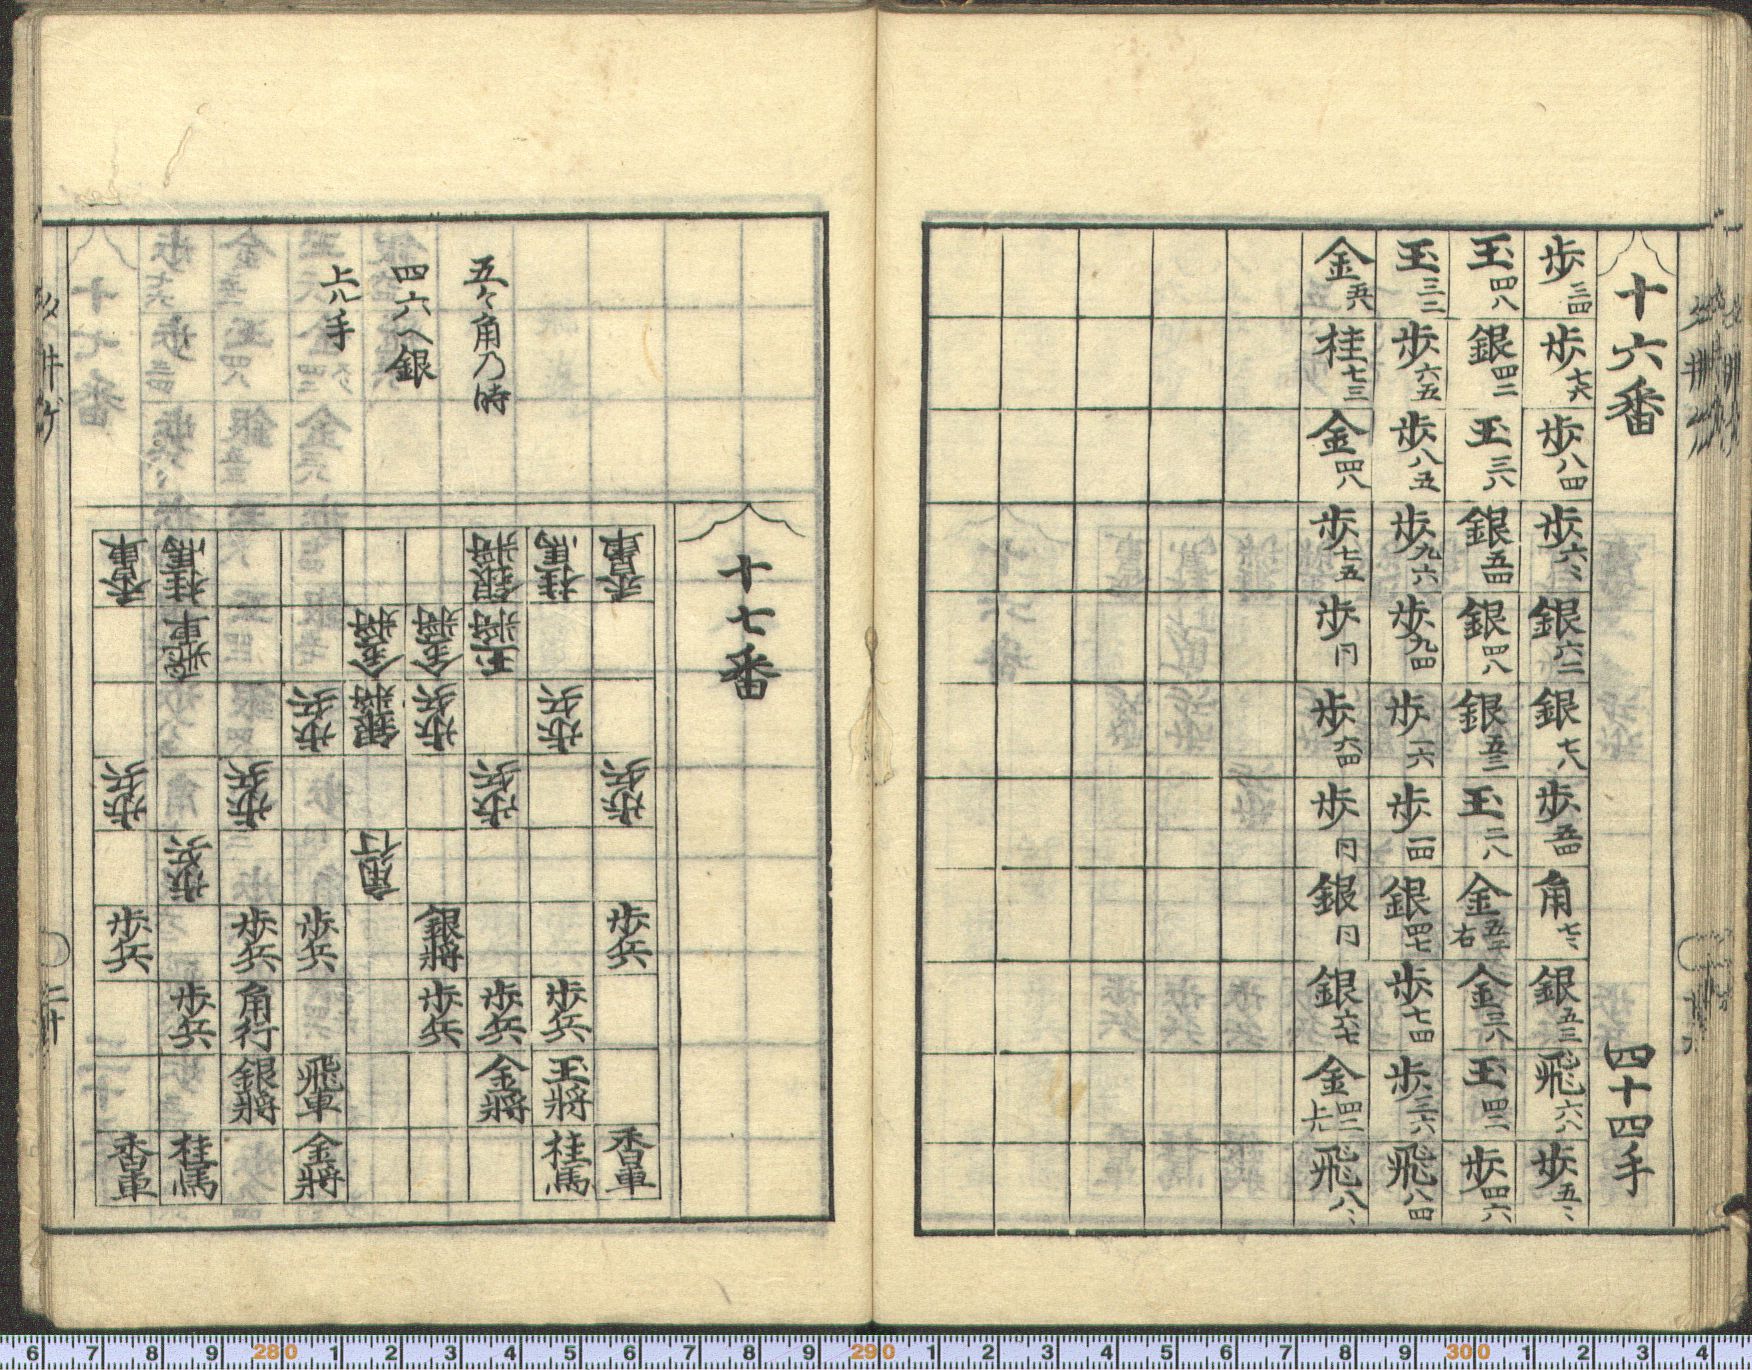 十六番 四十四手
歩三四 歩七六 歩八四 歩六〻 銀六二 銀七八 歩五四 角七〻 銀五三 飛六八 歩五〻
玉四八 銀四二 玉三八 銀五四 銀四八 銀五三 玉二八 金五二右 金三八 玉四二 歩四六
玉三二 歩六五 歩八五 歩九六 歩九四 歩一六 歩一四 銀四七 歩七四 歩三六 飛八四
金五八 桂七三 金四八 歩七五 歩同 歩六四 歩同 銀同 銀六七 金四二上 飛八〻
五〻角乃時
四六へ銀
上ル手
十七番
香車 歩兵 歩兵 香車
桂馬 歩兵 歩兵 玉將 桂馬
銀將 玉將 歩兵 歩兵 金將
金將 歩兵 銀將 歩兵
金將 銀將 角行
歩兵 歩兵 飛車 金將
歩兵 歩兵 角行 銀將
桂馬 飛車 歩兵 歩兵 桂馬
香車 歩兵 歩兵 香車
二十